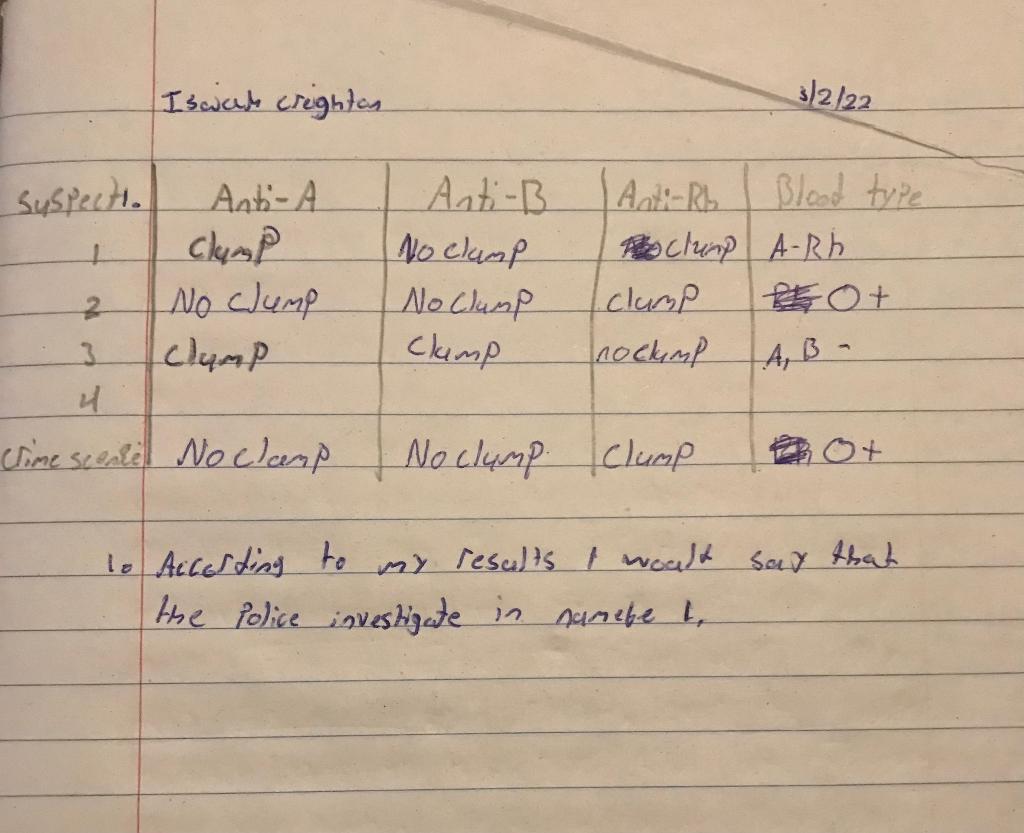 Isaiah Creighton 3/2/22
Suspect 1. Anti-A Anti-B Anti-Rh Blood type
1 Clump No Clump clump A-Rh
2 No Clump No Clump clump O+
3 Clump Clump no clump A, B -
4
Crime No Clamp No Clump Clump O+
1. According to my results I would say that
the Police investigate in 1.